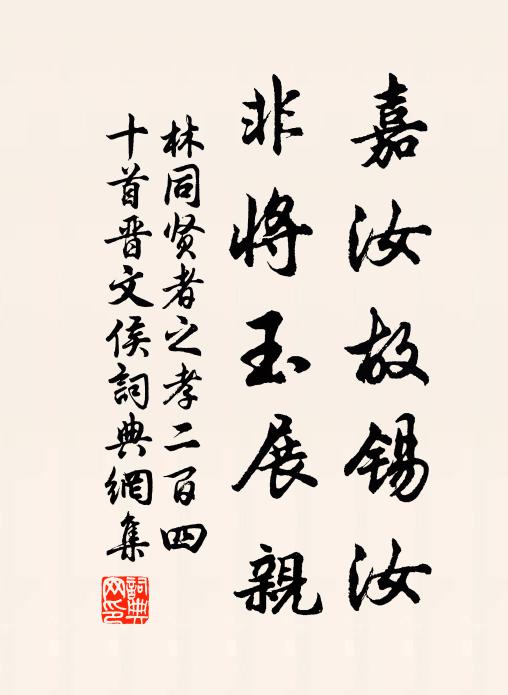 嘉汝故锡汝
非将玉展親
林同贤者之孝二百四
十首晋文侯詞典網集
詞典網印